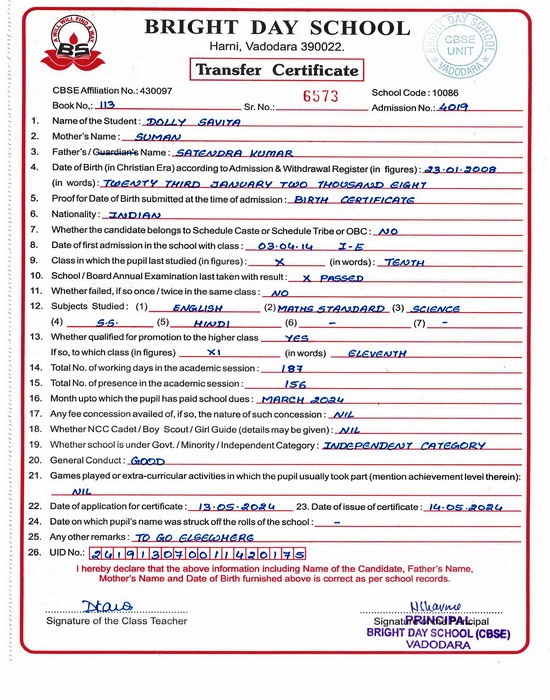 A WILL WILL FIND A WAY
BS
BRIGHT DAY SCHOOL
Harni, Vadodara 390022.
BRIGHT DAY SCHOOL
CBSE
UNIT
* VADODARA *
Transfer Certificate
CBSE Affiliation No.: 430097 School Code : 10086
Book No.: 113 Sr. No.: 6573 Admission No.: 4019
1. Name of the Student : DOLLY SAVITA
2. Mother's Name : SUMAN
3. Father's / Guardian's Name : SATENDRA KUMAR
4. Date of Birth (in Christian Era) according to Admission & Withdrawal Register (in figures) : 23-01-2008
(in words) : TWENTY THIRD JANUARY TWO THOUSAND EIGHT
5. Proof for Date of Birth submitted at the time of admission : BIRTH CERTIFICATE
6. Nationality : INDIAN
7. Whether the candidate belongs to Schedule Caste or Schedule Tribe or OBC : NO
8. Date of first admission in the school with class : 03-04-14 I-E
9. Class in which the pupil last studied (in figures) : X (in words) : TENTH
10. School / Board Annual Examination last taken with result : X PASSED
11. Whether failed, if so once / twice in the same class : NO
12. Subjects Studied : (1) ENGLISH (2) MATHS STANDARD (3) SCIENCE
(4) S.S. (5) HINDI (6) - (7) -
13. Whether qualified for promotion to the higher class YES
If so, to which class (in figures) XI (in words) ELEVENTH
14. Total No. of working days in the academic session : 187
15. Total No. of presence in the academic session : 156
16. Month upto which the pupil has paid school dues : MARCH 2024
17. Any fee concession availed of, if so, the nature of such concession : NIL
18. Whether NCC Cadet / Boy Scout / Girl Guide (details may be given) : NIL
19. Whether school is under Govt. / Minority / Independent Category : INDEPENDENT CATEGORY
20. General Conduct : GOOD
21. Games played or extra-curricular activities in which the pupil usually took part (mention achievement level therein) :
NIL
22. Date of application for certificate : 13-05-2024 23. Date of issue of certificate : 14-05-2024
24. Date on which pupil's name was struck off the rolls of the school : -
25. Any other remarks : TO GO ELSEWHERE
26. UID No.: 241913070011420175
I hereby declare that the above information including Name of the Candidate, Father's Name,
Mother's Name and Date of Birth furnished above is correct as per school records.
Signature of the Class Teacher Signature of the Principal
PRINCIPAL
BRIGHT DAY SCHOOL (CBSE)
VADODARA